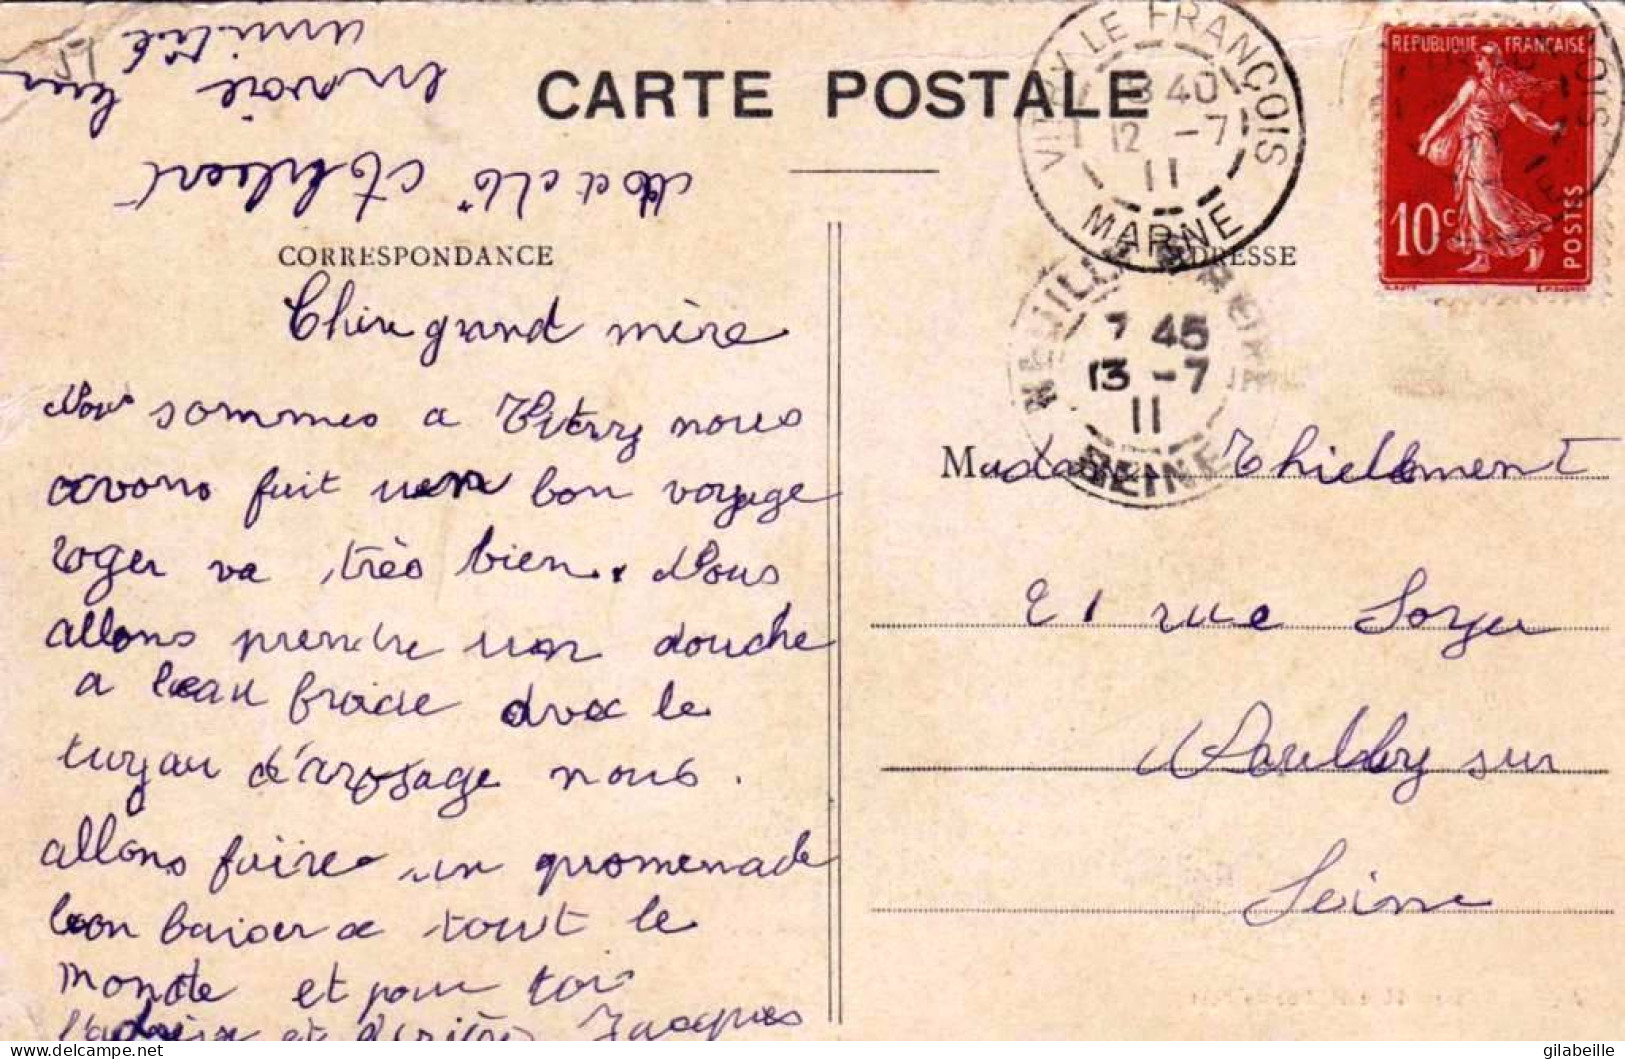 CARTE POSTALE
CORRESPONDANCE
ADRESSE
Mr et Mme Achbert
envoie leur
amitié
Chère grand mère
Nous sommes a Vitry nous
avons fait un bon voyage
roger va très bien. Nous
allons prendre un douche
a leau froide avec le
tuyau d'arrosage nous.
allons faire un promenade
bon baiser a tout le
monde et pour toi
et Jacques
VITRY LE FRANÇOIS
13 40
12 -7
11
MARNE
7 45
13 -7
11
SEINE
REPUBLIQUE FRANÇAISE
10c
POSTES
Madame Thiellement
21 rue Soyer
Neuilly sur
Seine
57
gilabeille